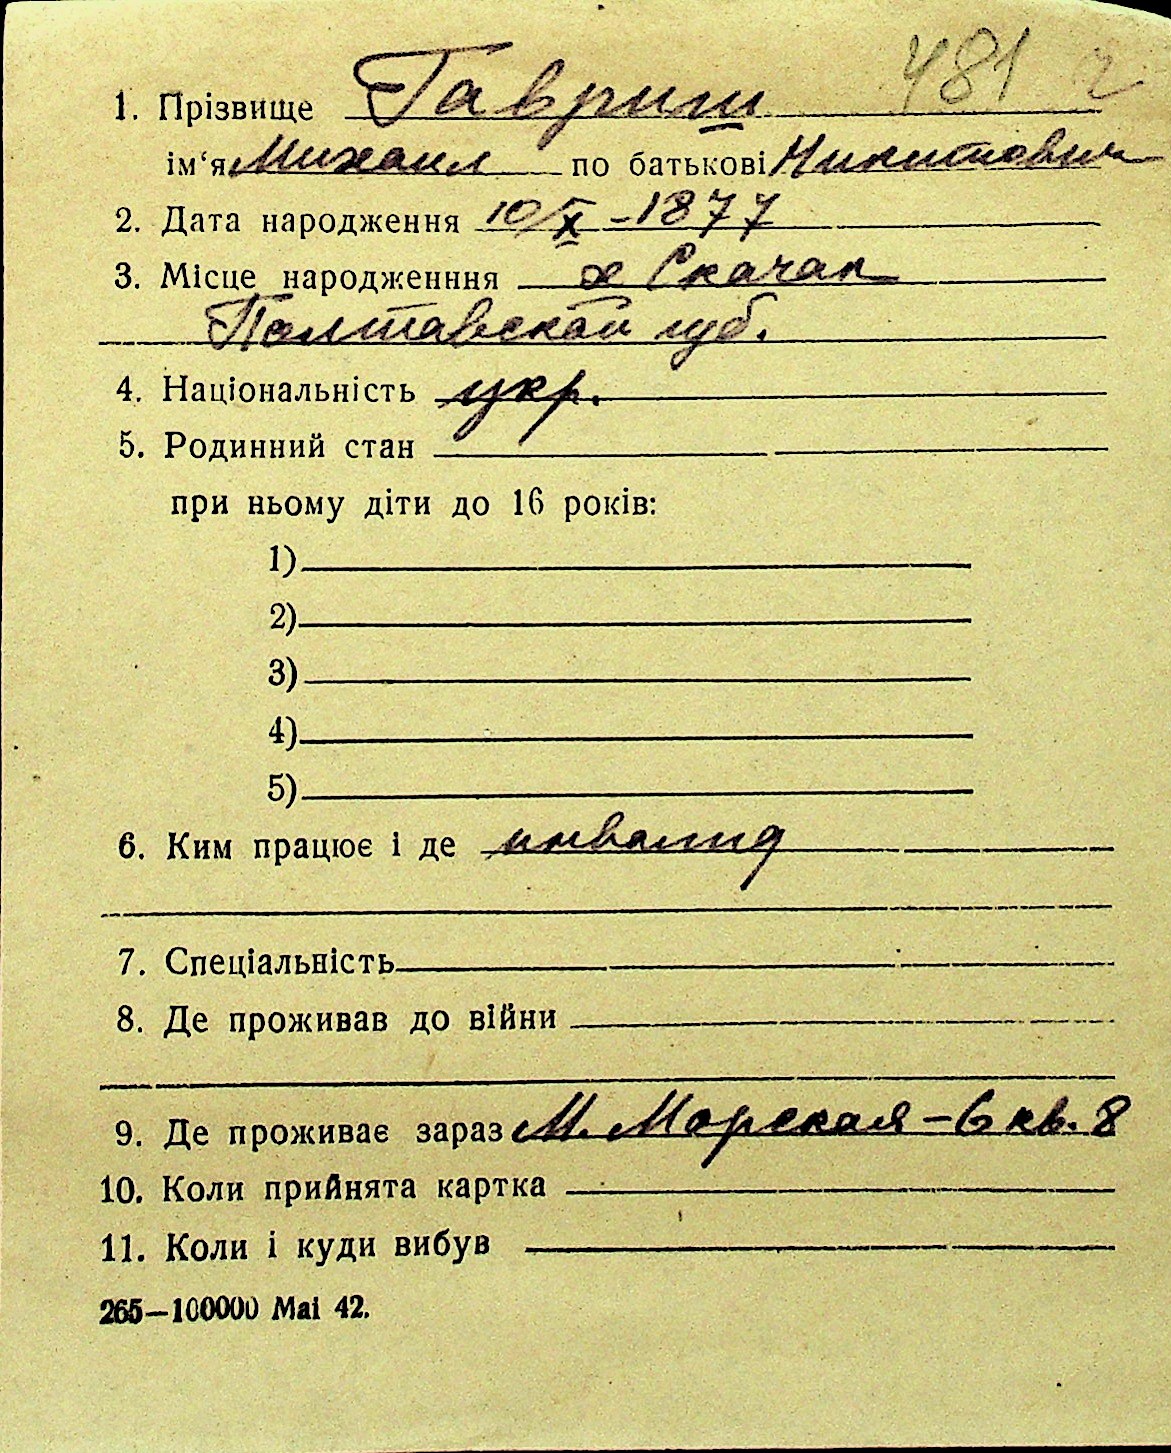 481 г
1. Прізвище Гавриш
ім‘я Михаил по батькові Никитович
2. Дата народження 10/X -1877
3. Місце народженння х Скачак
Полтавской губ.
4. Національність укр.
5. Родинний стан
при ньому діти до 16 років:
1)
2)
3)
4)
5)
6. Ким працює і де инвалид
7. Спеціальність
8. Де проживав до війни
9. Де проживає зараз М. Морская - 6 кв. 8
10. Коли прийнята картка
11. Коли і куди вибув
265—100000 Mai 42.